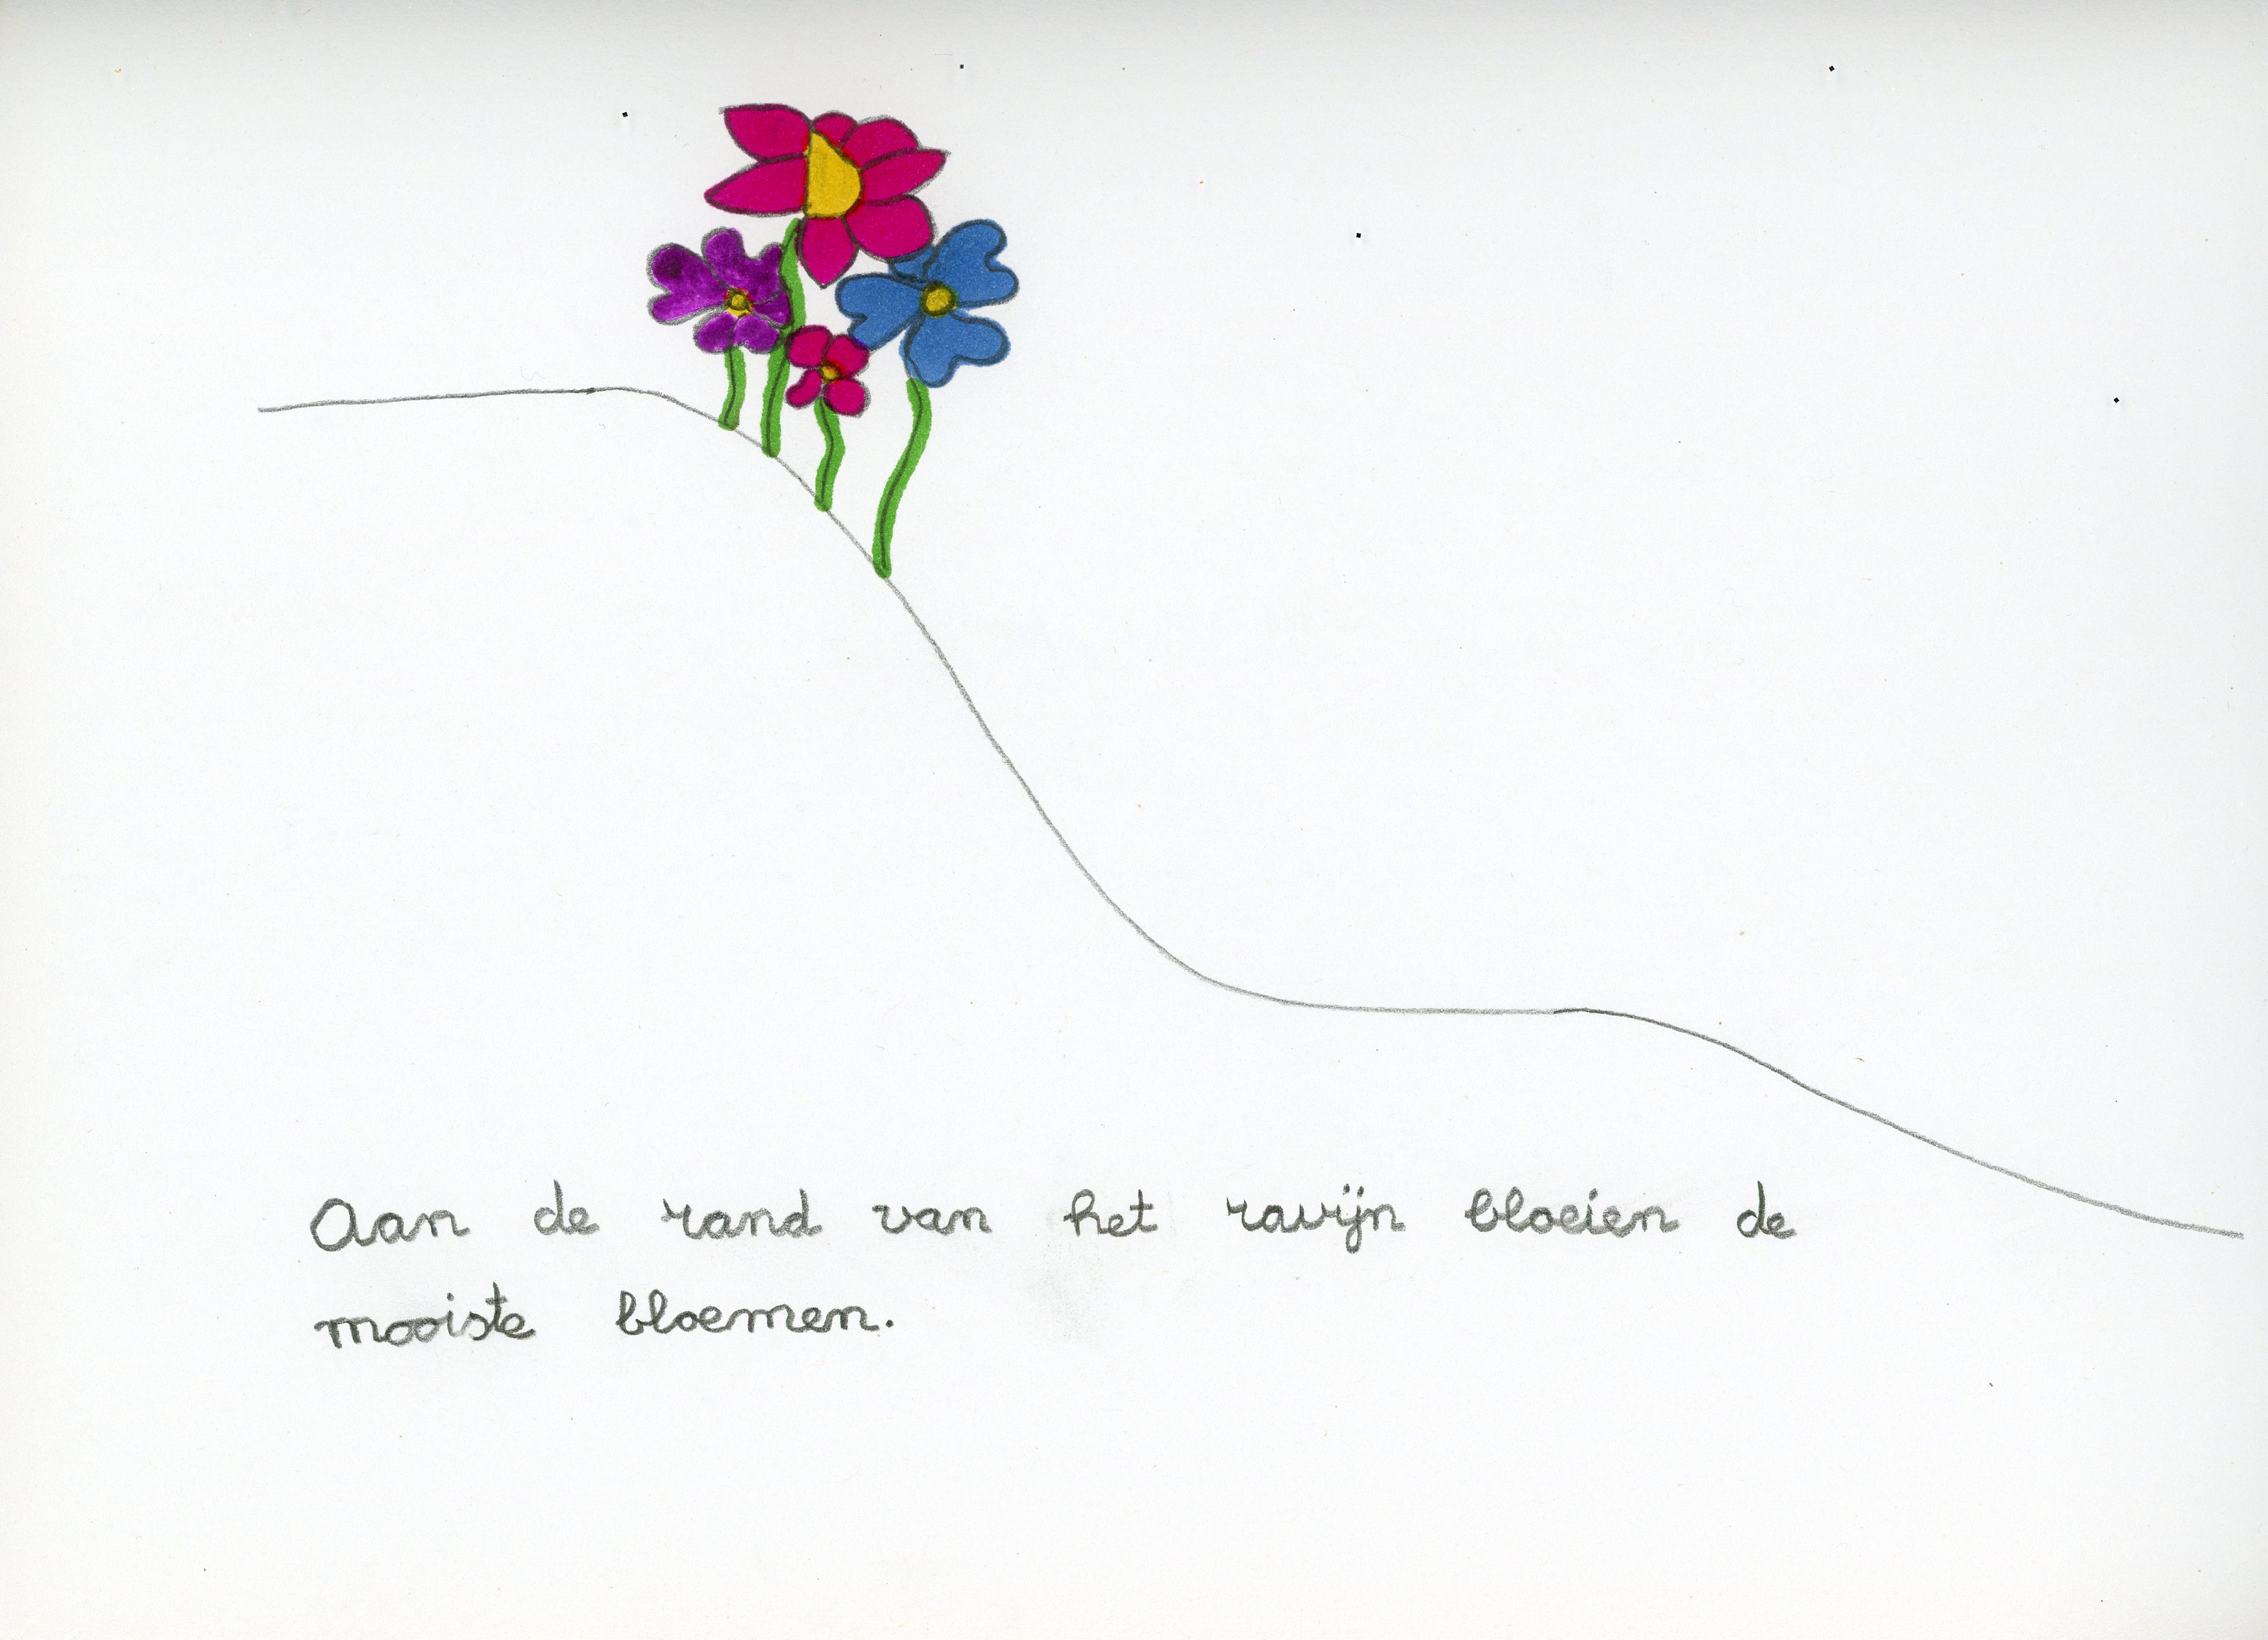 Aan de rand van het ravijn bloeien de
mooiste bloemen.